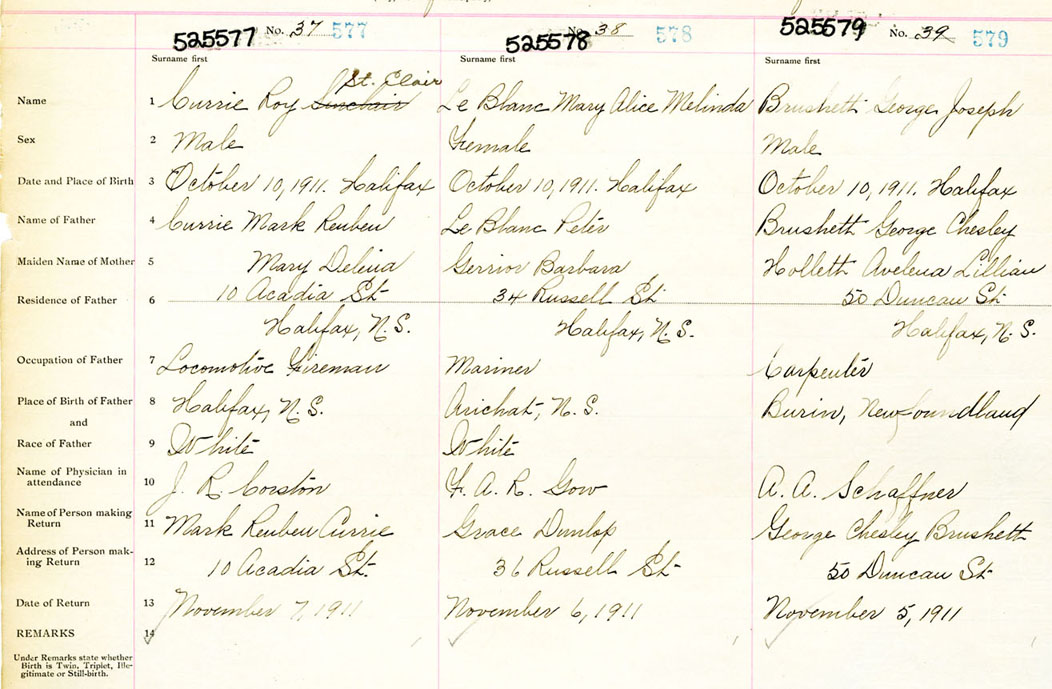 525577 No. 37 577
525578 No. 38 578
525579 No. 39 579
Surname first Surname first Surname first
St. Clair
Name 1 Currie Roy Sinclair Le Blanc Mary Alice Melinda Brushett George Joseph
Sex 2 Male Female Male
Date and Place of Birth 3 October 10, 1911. Halifax October 10, 1911. Halifax October 10, 1911. Halifax
Name of Father 4 Currie Mark Reuben Le Blanc Peter Brushett George Chesley
Maiden Name of Mother 5 Mary Delena Gerrior Barbara Hollett Avelena Lillian
Residence of Father 6 10 Acadia St. 34 Russell St. 50 Duncan St.
Halifax, N.S. Halifax, N.S. Halifax, N.S.
Occupation of Father 7 Locomotive Fireman Mariner Carpenter
Place of Birth of Father 8 Halifax, N.S. Arichat, N.S. Burin, Newfoundland
and
Race of Father 9 White White
Name of Physician in
attendance 10 J. R. Corston F. A. R. Gow A. A. Schaffner
Name of Person making
Return 11 Mark Reuben Currie Grace Dunlop George Chesley Brushett
Address of Person mak-
ing Return 12 10 Acadia St. 36 Russell St. 50 Duncan St.
Date of Return 13 November 7, 1911 November 6, 1911 November 5, 1911
REMARKS 14
Under Remarks state whether
Birth is Twin, Triplet, Ille-
gitimate or Still-birth.